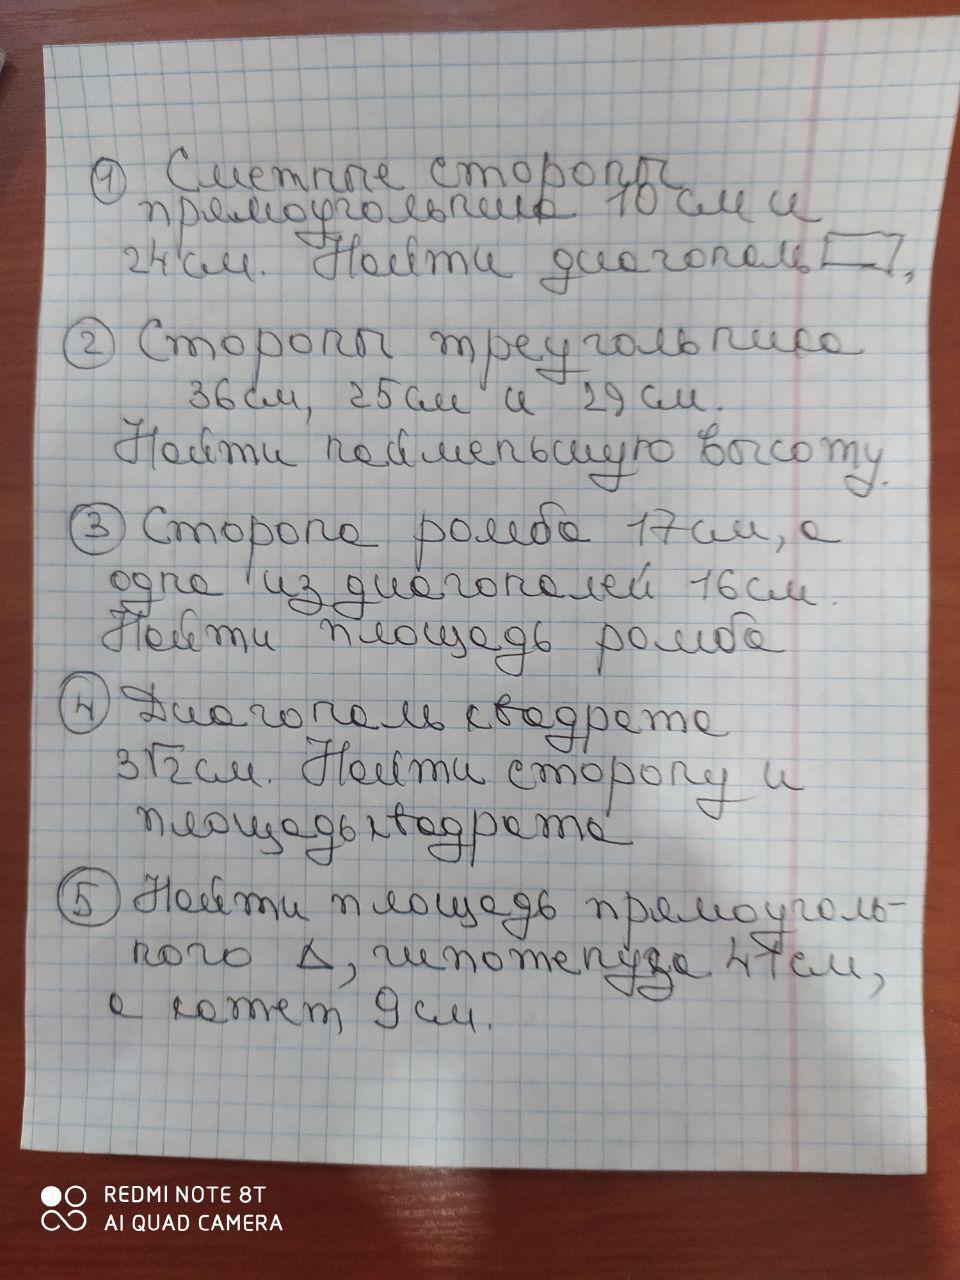 ① Смежные стороны
прямоугольника 10 см и
24 см. Найти диагональ ▭,
② Стороны треугольника
36 см, 25 см и 29 см.
Найти наименьшую высоту.
③ Сторона ромба 17 см, а
одна из диагоналей 16 см.
Найти площадь ромба
④ Диагональ квадрата
3√2 см. Найти сторону и
площадь квадрата
⑤ Найти площадь прямоуголь-
ного Δ, гипотенуза 41 см,
а катет 9 см.
REDMI NOTE 8T
AI QUAD CAMERA